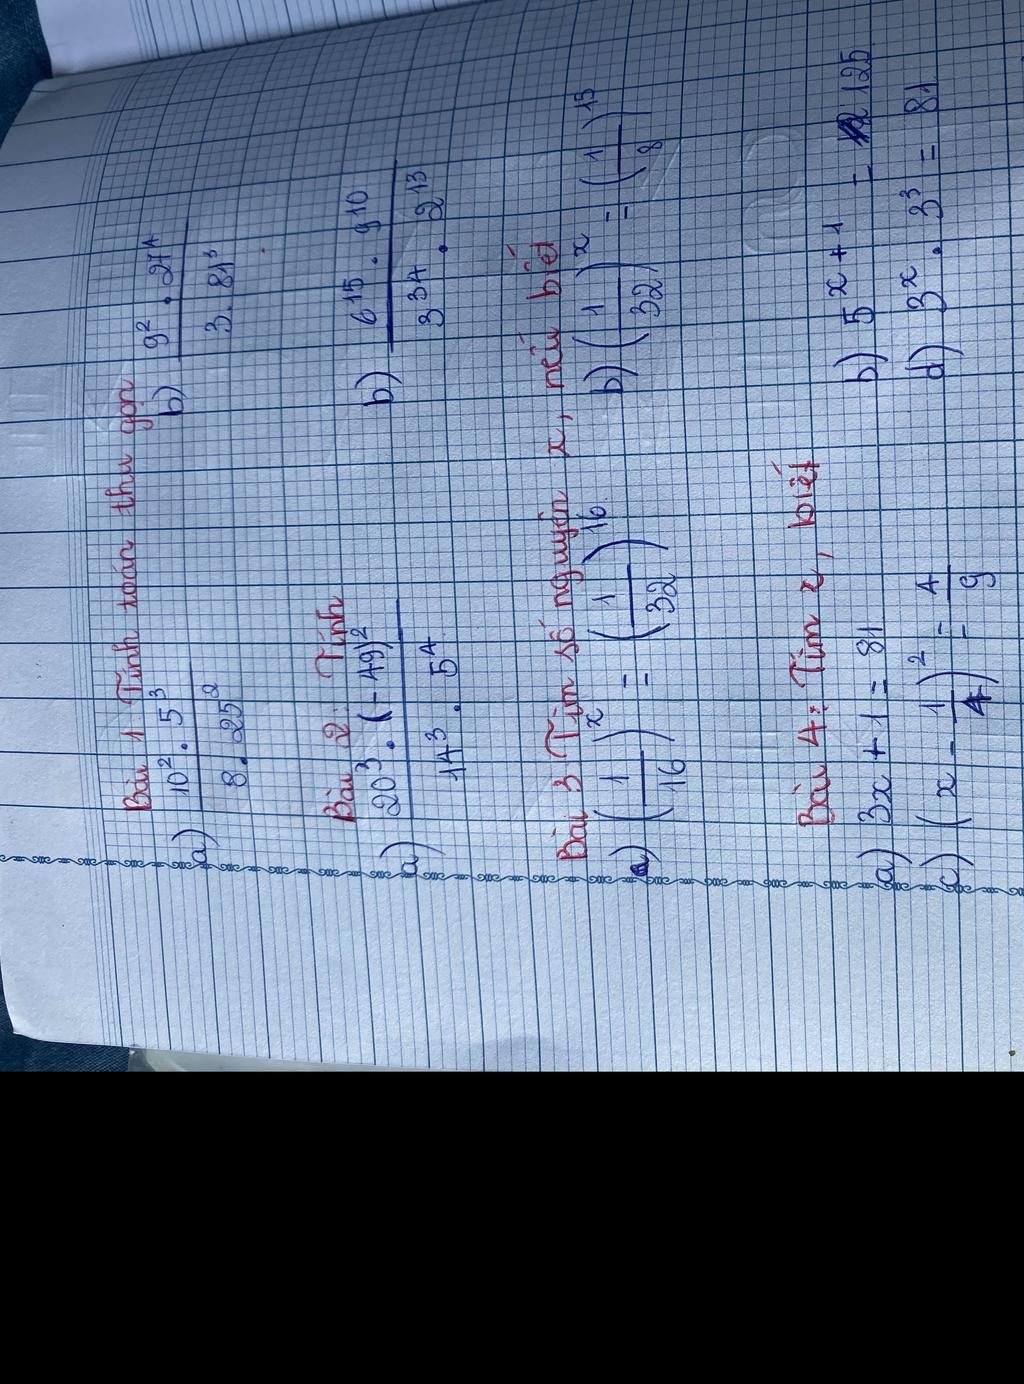 Bài 1 Tính toán thu gọn
a) 10² . 5³ / 8 . 25² b) 9² . 27⁴ / 3 . 81³
Bài 2: Tính
a) 20³ . (-49)² / 14³ . 5⁴ b) 6¹⁵ . 9¹⁰ / 3³⁴ . 2¹³
Bài 3 Tìm số nguyên x, nếu biết
a) (1/16)ˣ = (1/32)¹⁶ b) (1/32)ˣ = (1/8)¹⁵
Bài 4: Tìm x, biết
a) 3x + 1 = 81 b) 5ˣ⁺¹ = 125
c) (x - 1/4)² = 4/9 d) 3ˣ . 3³ = 81